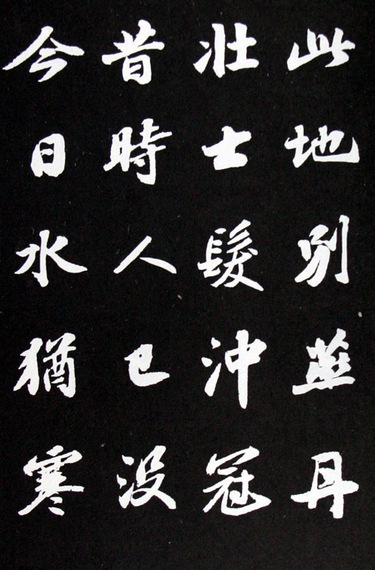 此地別燕丹
壯士髮沖冠
昔時人已沒
今日水猶寒